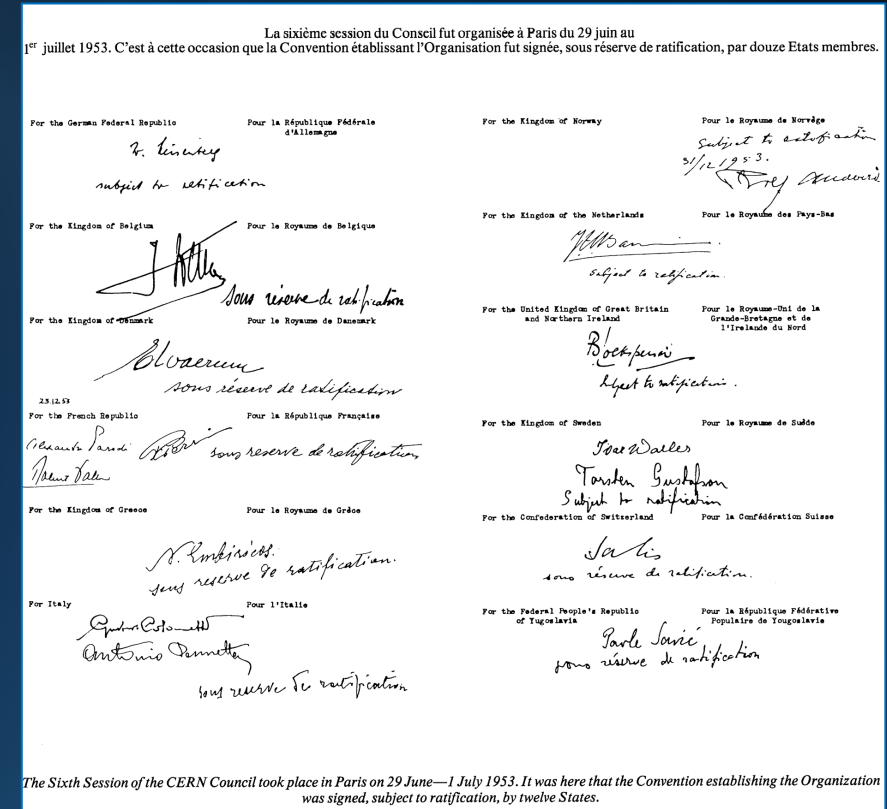 La sixième session du Conseil fut organisée à Paris du 29 juin au
1er juillet 1953. C'est à cette occasion que la Convention établissant l'Organisation fut signée, sous réserve de ratification, par douze Etats membres.
For the German Federal Republic
Pour la République Fédérale
d'Allemagne
subject to ratification
For the Kingdom of Belgium
Pour le Royaume de Belgique
sous réserve de ratification
For the Kingdom of Denmark
Pour le Royaume de Danemark
sous réserve de ratification
23.12.53
For the French Republic
Pour la République Française
Alexandre Parodi
sous reserve de ratification
For the Kingdom of Greece
Pour le Royaume de Grèce
N. Embiricos.
sous reserve de ratification.
For Italy
Pour l'Italie
Antonio
sous reserve de ratification
For the Kingdom of Norway
Pour le Royaume de Norvège
Subject to ratification
31/12 1953.
For the Kingdom of the Netherlands
Pour le Royaume des Pays-Bas
subject to ratification.
For the United Kingdom of Great Britain
and Northern Ireland
Pour le Royaume-Uni de la
Grande-Bretagne et de
l'Irelande du Nord
subject to ratification.
For the Kingdom of Sweden
Pour le Royaume de Suède
Ivar Waller
Torsten Gustafson
Subject to ratification
For the Confederation of Switzerland
Pour la Confédération Suisse
sous réserve de ratification.
For the Federal People's Republic
of Yugoslavia
Pour la République Fédérative
Populaire de Yougoslavie
Pavle Savić
sous réserve de ratification
The Sixth Session of the CERN Council took place in Paris on 29 June—1 July 1953. It was here that the Convention establishing the Organization
was signed, subject to ratification, by twelve States.